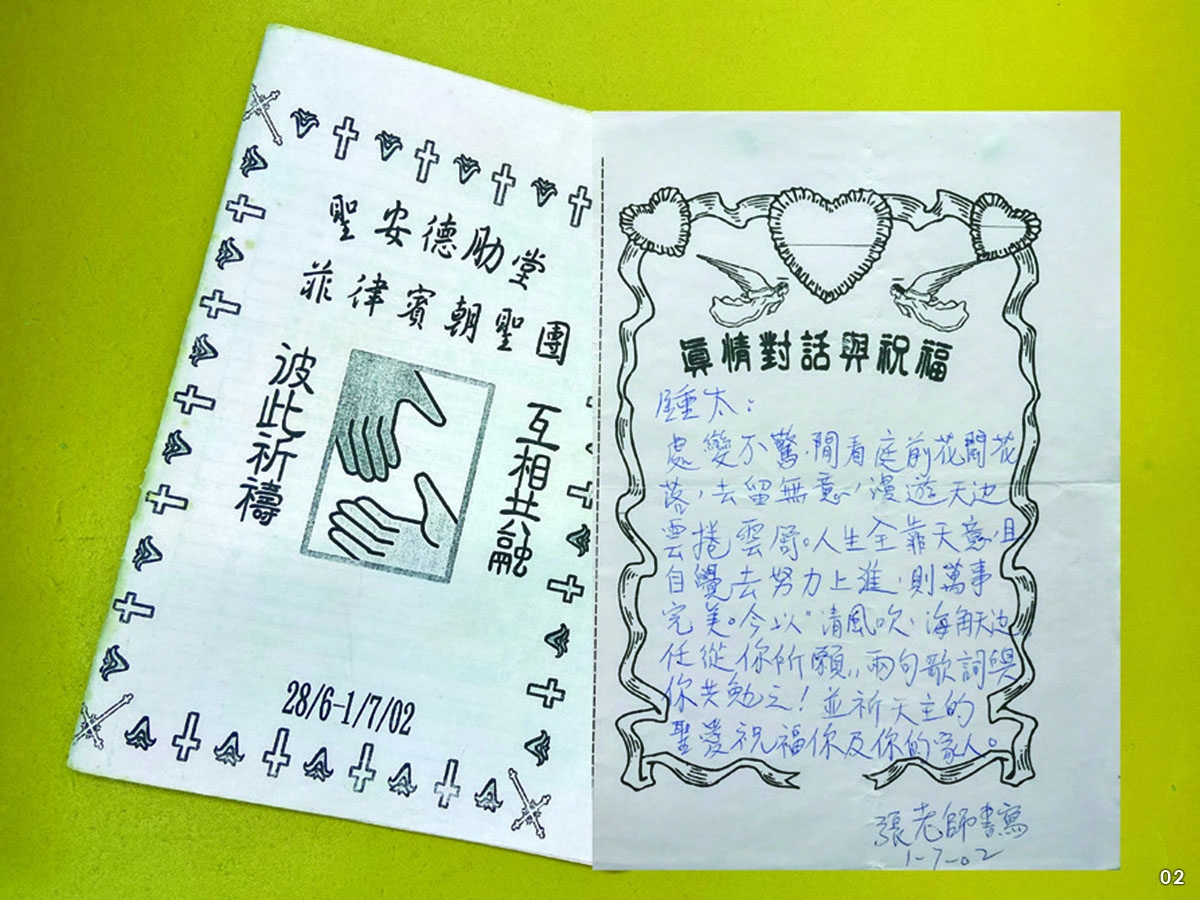 聖安德肋堂
菲律賓朝聖團
彼此祈禱
互相共融
28/6-1/7/02
眞情對話與祝福
太：
處變不驚，閒看庭前花開花
落，去留無意，漫遊天边
雲捲雲舒。人生全靠天意，且
自覺去努力上進，則萬事
完美。今以“清風吹，海角天边，
任從你所願”兩句歌詞與
你共勉之！並祈天主的
聖愛祝福你及你的家人。
張老師書寫
1-7-02
02